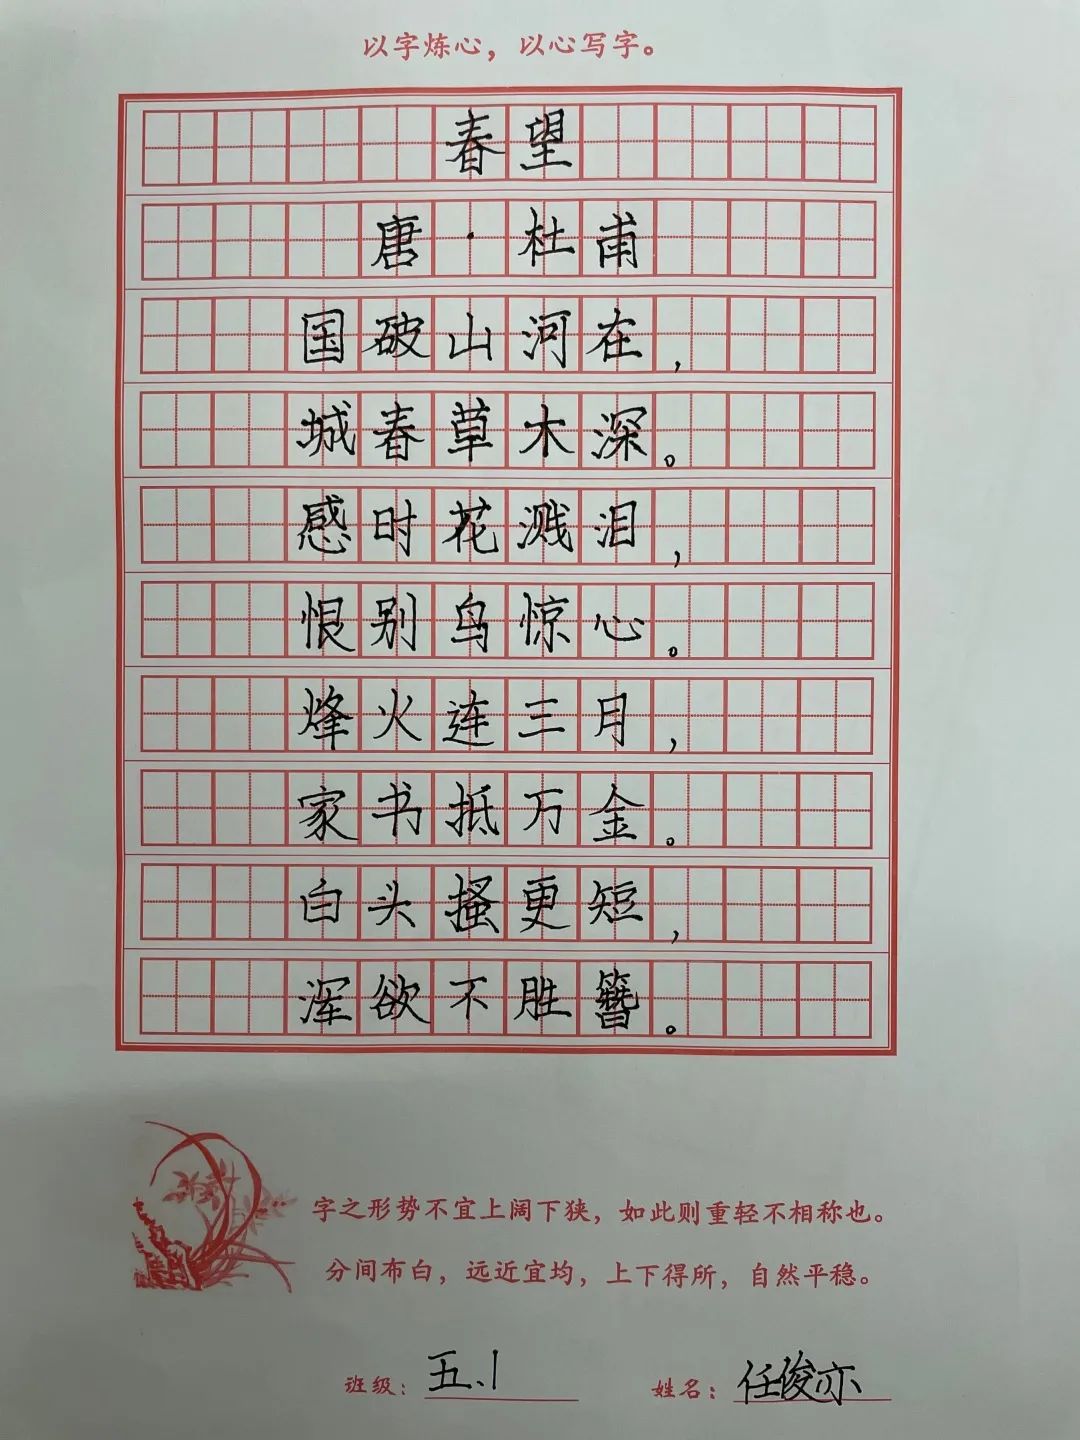 以字炼心，以心写字。
春望
唐·杜甫
国破山河在，
城春草木深。
感时花溅泪，
恨别鸟惊心。
烽火连三月，
家书抵万金。
白头搔更短，
浑欲不胜簪。
字之形势不宜上阔下狭，如此则重轻不相称也。
分间布白，远近宜均，上下得所，自然平稳。
班级：五.1 姓名：任俊亦